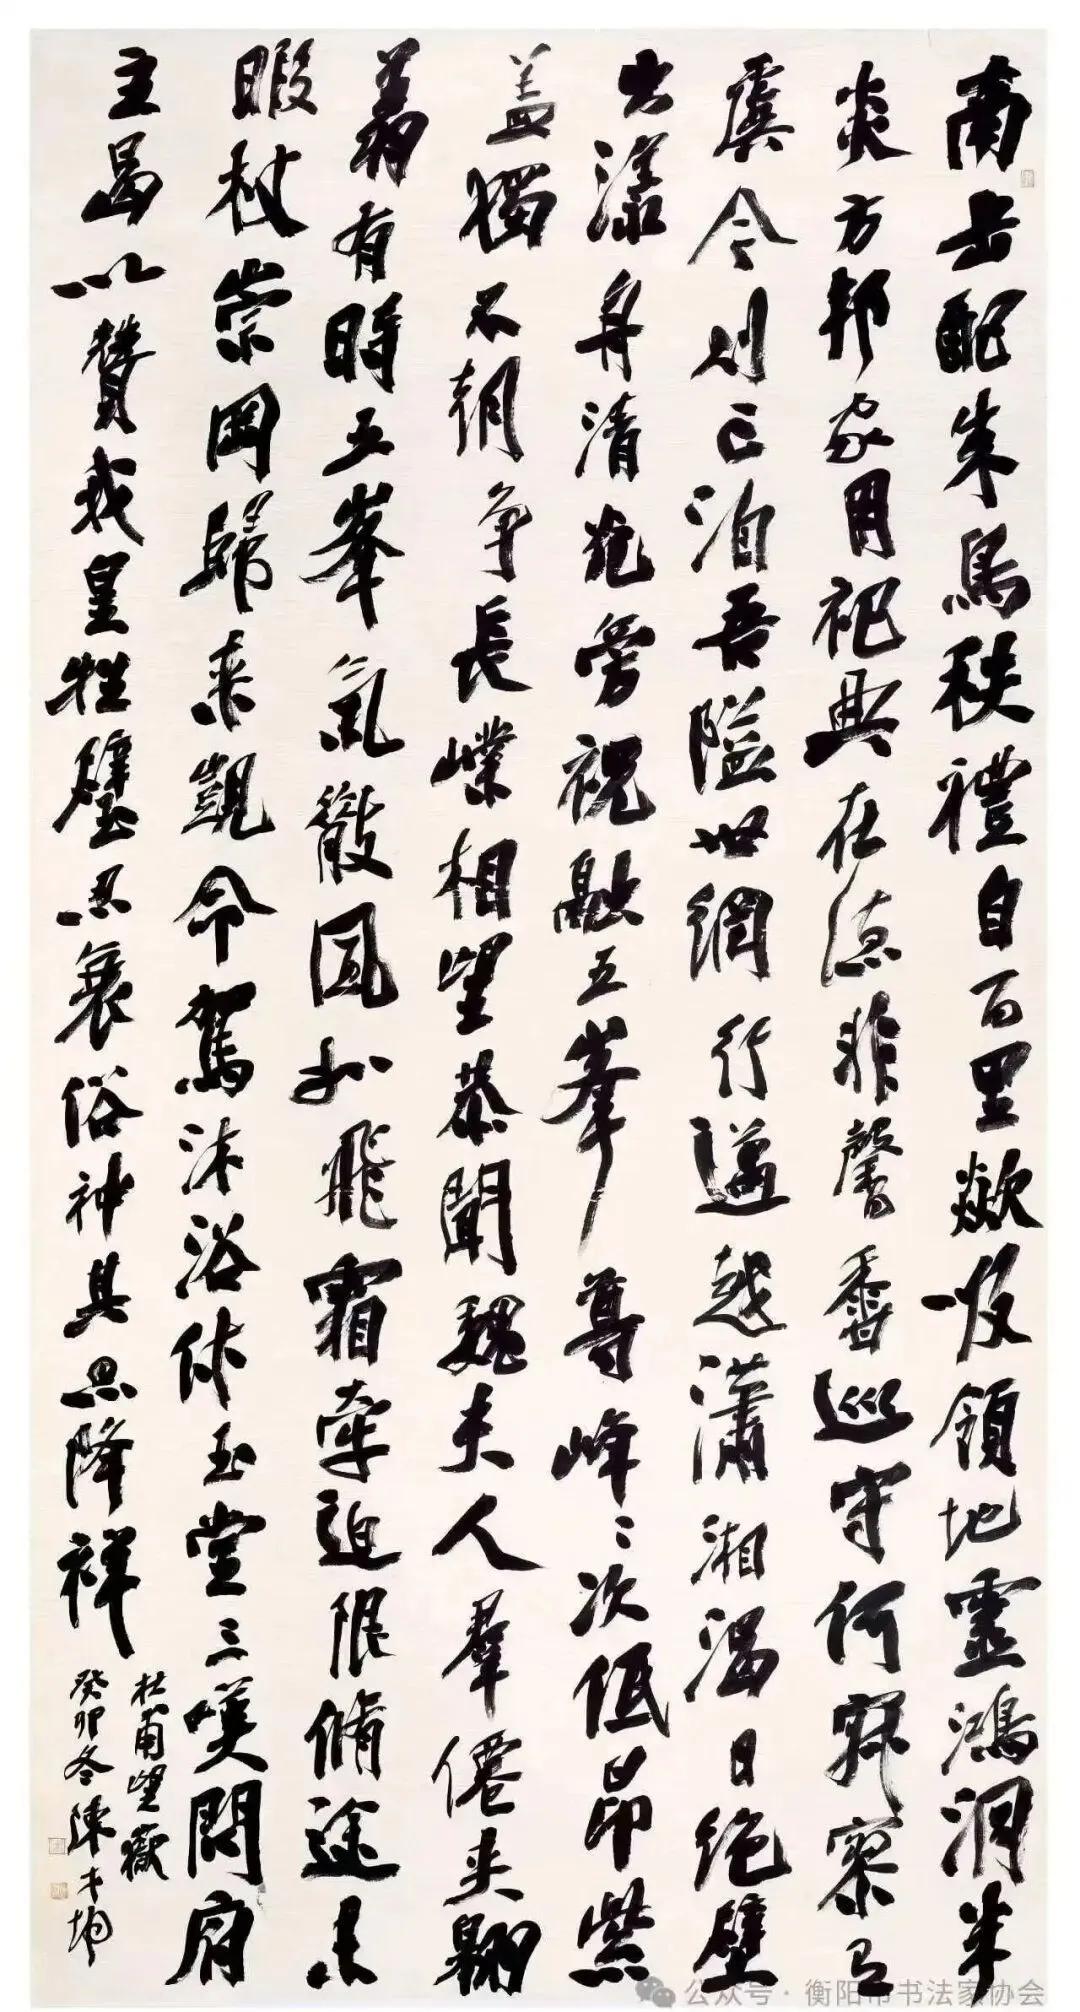 南岳配朱鳥秩禮自百王欻吸領地靈鴻洞半
炎方邦家用祀典在德非馨香巡守何寂寥有
虞今則亡洎吾隘世網行邁越瀟湘渴日绝壁
出漾舟清光旁祝融五峯尊峰〻次低昂紫
盖獨不朝争長嶫相望恭聞魏夫人羣僊夾翱
翔有時五峯氣散風如飛霜牽迫限脩途未
暇杖崇岡歸来覬命駕沐浴休玉堂三嘆問府
主曷以贊我皇牲璧忍衰俗神其思降祥
杜甫望嶽
癸卯冬陳才坤
公众号·衡阳市书法家协会